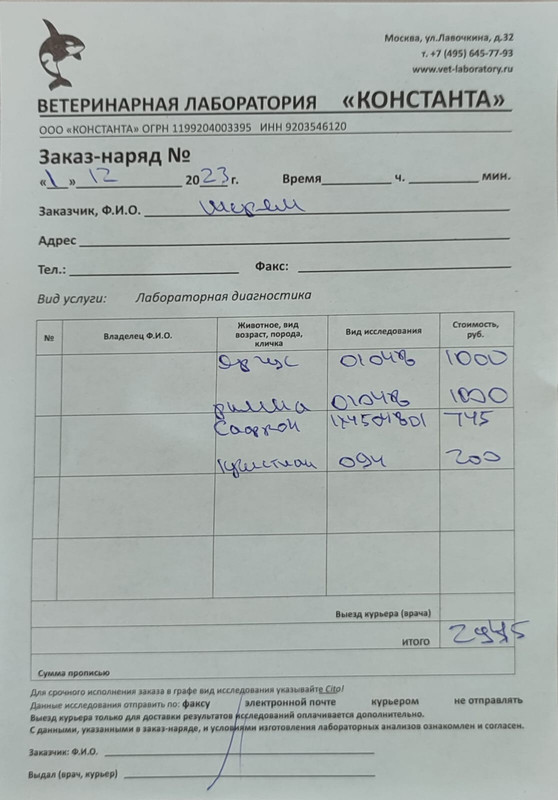 Москва, ул.Лавочкина, д.32
т. +7 (495) 645-77-93
www.vet-laboratory.ru
ВЕТЕРИНАРНАЯ ЛАБОРАТОРИЯ «КОНСТАНТА»
ООО «КОНСТАНТА» ОГРН 1199204003395 ИНН 9203546120
Заказ-наряд №
«1» 12 2023г. Время ч. мин.
Заказчик, Ф.И.О.
Адрес
Тел.: Факс:
Вид услуги: Лабораторная диагностика
№ Владелец Ф.И.О. Животное, вид возраст, порода, кличка Вид исследования Стоимость, руб.
Аргус 0104В 1000
Римма 0104В 1000
745
Кристиан 094 200
Выезд курьера (врача)
ИТОГО 2945
Сумма прописью
Для срочного исполнения заказа в графе вид исследования указывайте Cito!
Данные исследования отправить по: факсу электронной почте курьером не отправлять
Выезд курьера только для доставки результатов исследований оплачивается дополнительно.
С данными, указанными в заказ-наряде, и условиями изготовления лабораторных анализов ознакомлен и согласен.
Заказчик: Ф.И.О.
Выдал (врач, курьер)